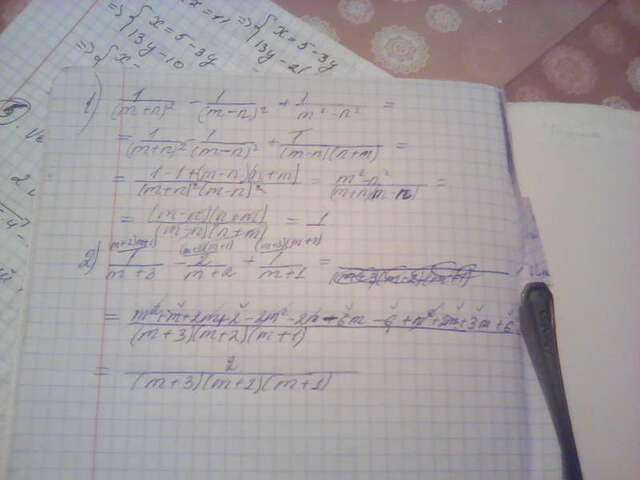 => { x = 5 - 3y => { x = 5 - 3y
13y - 10 13y - 21
=> { x -
1) 1/(m+n)² - 1/(m-n)² + 1/(m²-n²) =
= 1/(m+n)² - 1/(m-n)² + 1/((m-n)(n+m)) =
= (1-1+(m-n)(n+m))/((m+n)²(m-n)²) = (m²-n²)/((m+n)(m-n)) =
= ((m-n)(n+m))/((m-n)(n+m)) = 1
2) 1/(m+3) - 2/(m+2) + 1/(m+1) =
= (m²+m+2m+2-2m²-2m-6m-6+m²+2m+3m+6)/((m+3)(m+2)(m+1))
= 2/((m+3)(m+2)(m+1))